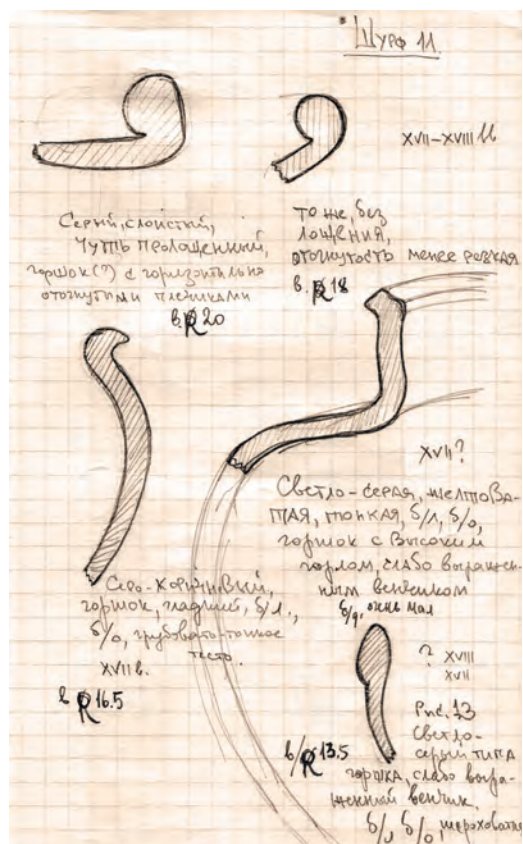 Шурф 11.
XVII–XVIII вв
Серый, слоистый,
чуть пролощенный,
горшок(?) с горизонтально
отогнутыми плечиками
в. R 20
то же, без
лощения,
отогнутость менее резкая
в. R 18
XVII?
Светло-серая, желтова-
тая, тонкая, б/л, б/о,
горшок с высоким
горлом, слабо выражен-
ным венчиком
очень мал
Серо-коричневый,
горшок, гладкий, б/л.,
б/о, грубовато-тонкое
тесто.
XVII в.
в R 16.5
? XVIII
XVII
Рис. 13
Светло-
серый типа
горшка, слабо выра-
женный венчик.
б/л, б/о, шероховатый
в/R 13.5